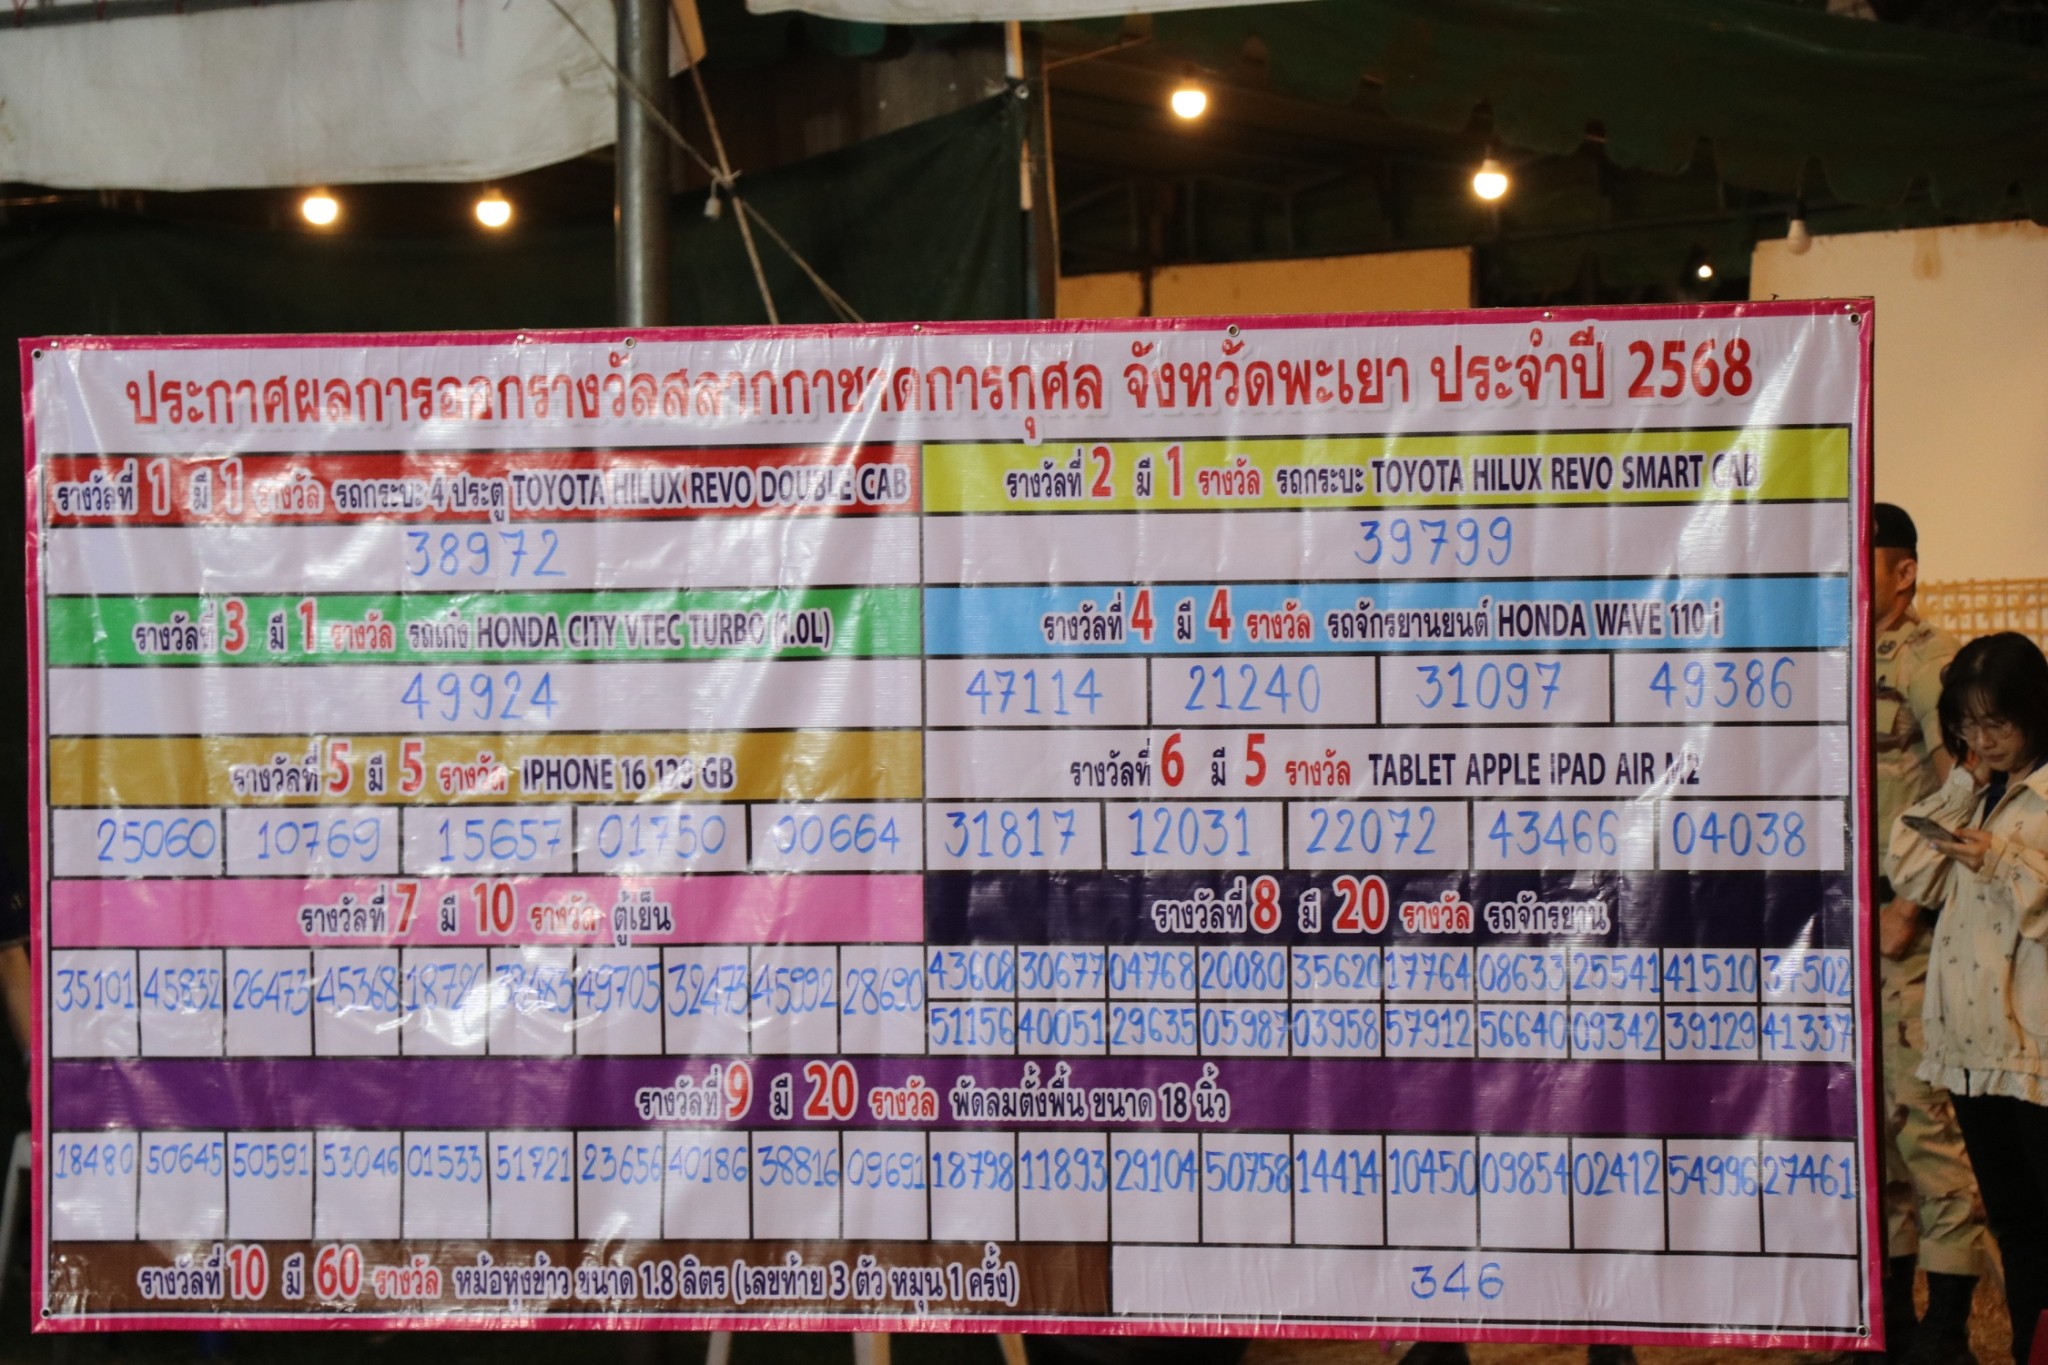 ประกาศผลการออกรางวัลสลากกาชาดการกุศล จังหวัดพะเยา ประจำปี 2568
รางวัลที่ 1 มี 1 รางวัล รถกระบะ 4 ประตู TOYOTA HILUX REVO DOUBLE CAB
38972
รางวัลที่ 2 มี 1 รางวัล รถกระบะ TOYOTA HILUX REVO SMART CAB
39799
รางวัลที่ 3 มี 1 รางวัล รถเก๋ง HONDA CITY VTEC TURBO (1.0L)
49924
รางวัลที่ 4 มี 4 รางวัล รถจักรยานยนต์ HONDA WAVE 110 i
47114 21240 31097 49386
รางวัลที่ 5 มี 5 รางวัล IPHONE 16 128 GB
25060 10769 15657 01750 00664
รางวัลที่ 6 มี 5 รางวัล TABLET APPLE IPAD AIR M2
31817 12031 22072 43466 04038
รางวัลที่ 7 มี 10 รางวัล ตู้เย็น
35101 45832 26473 45368 49705 32473 45992 28690
รางวัลที่ 8 มี 20 รางวัล รถจักรยาน
43608 30677 04768 20080 35620 17764 08633 25541 41510 37502
51156 40051 29635 05987 03958 57912 56640 09342 39129 41337
รางวัลที่ 9 มี 20 รางวัล พัดลมตั้งพื้น ขนาด 18 นิ้ว
18480 50645 50591 53046 01533 51721 23656 40186 38816 09691 18798 11893 29104 50758 14414 10450 09854 02412 54996 27461
รางวัลที่ 10 มี 60 รางวัล หม้อหุงข้าว ขนาด 1.8 ลิตร (เลขท้าย 3 ตัว หมุน 1 ครั้ง)
346